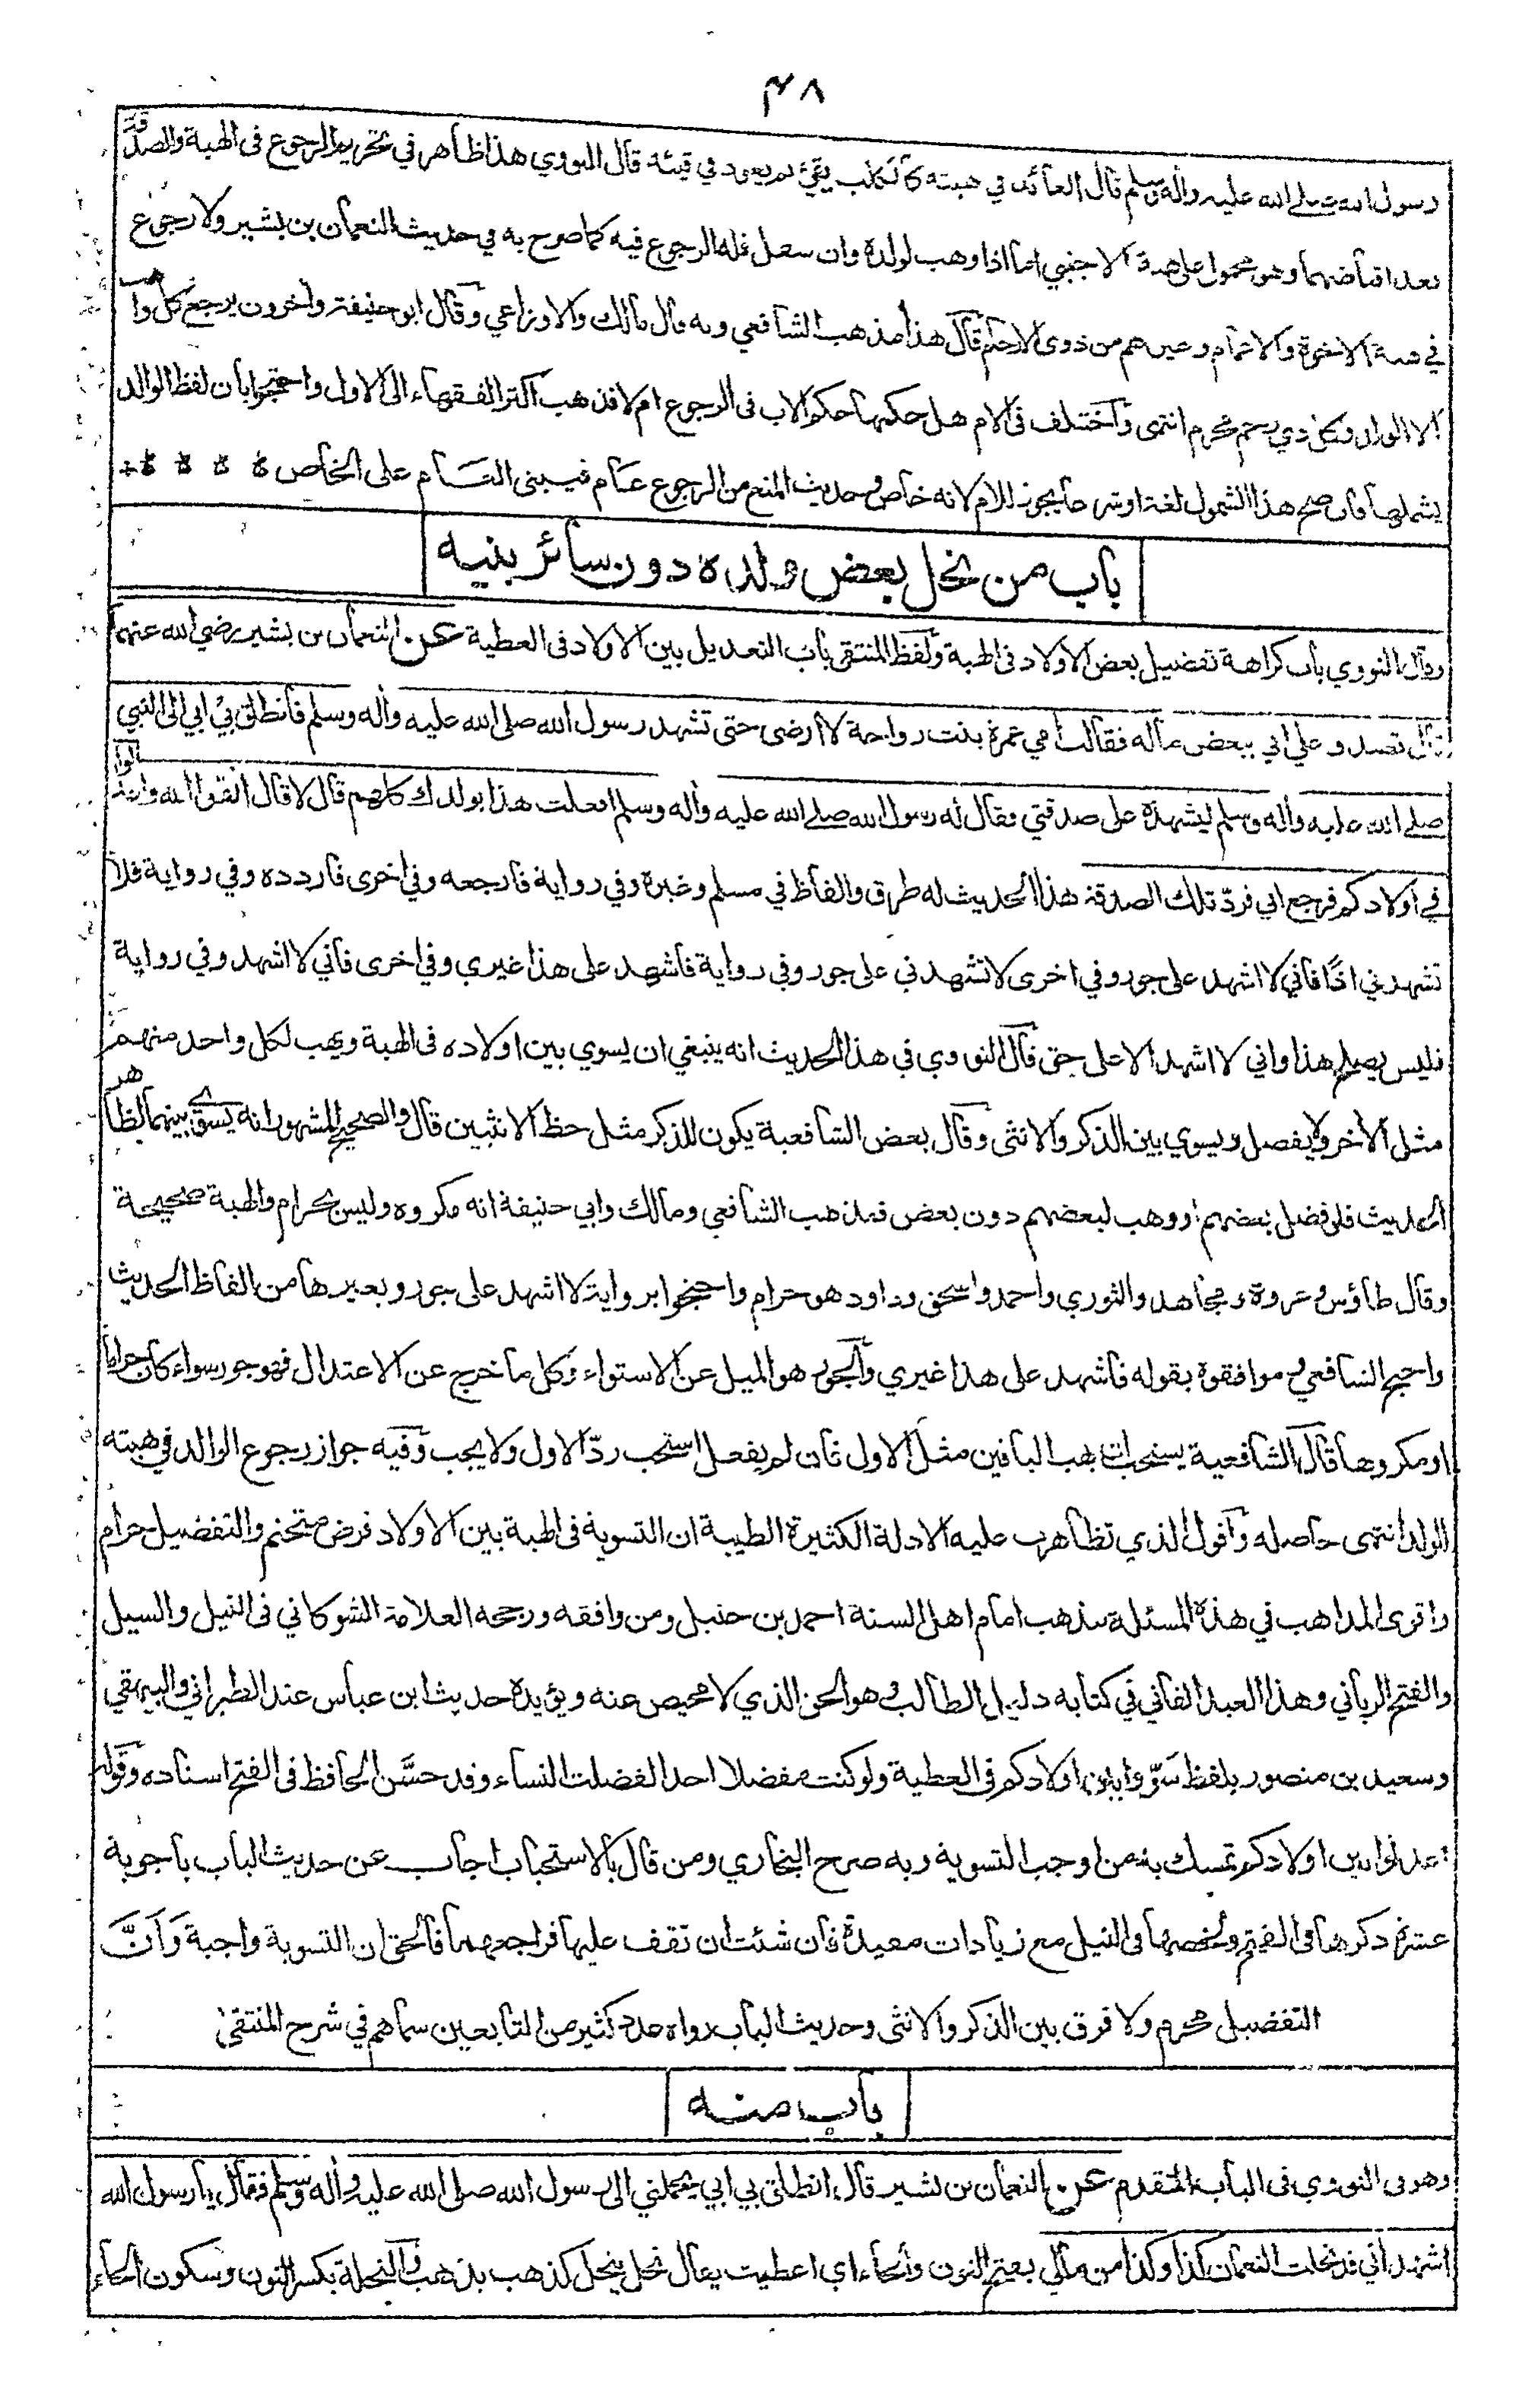 ٤٨
رسول الله صلى الله عليه واله وسلم قال العائد في هبته كالكلب يقيئ ثم يعود في قيئه قال النووي هذا ظاهر في تحريم الرجوع فى الهبة والصدقة
بعد اقباضهما وهو محمول على هبة الاجنبي اما اذا وهب لولده وان سفل فله الرجوع فيه كما صرح به في حديث النعمان بن بشير ولا رجوع
في هبة الاخوة والاعمام وغيرهم من ذوى الارحام قال هذا مذهب الشافعي وبه قال مالك والاوزاعي وقال ابو حنيفة واخرون يرجع كل واهب
الا الوالد وكل ذي رحم محرم انتهى واختلف فى الام هل حكمها حكم الاب فى الرجوع ام لا فذهب اكثر الفقهاء الى الاول واحتجوا بان لفظ الوالد
يشملها فان صح هذا الشمول لغة او شرعا يجوز للام لانه خاص وحديث المنع من الرجوع عام فيبنى العام على الخاص
باب من نحل بعض ولده دون سائر بنيه
وقال النووي باب كراهة تفضيل بعض الاولاد فى الهبة ولفظ المنتقى باب التعديل بين الاولاد فى العطية عن النعمان بن بشير رضي الله عنهما
قال تصدق علي ابي ببعض ماله فقالت امي عمرة بنت رواحة لا ارضى حتى تشهد رسول الله صلى الله عليه واله وسلم فانطلق بي ابي الى النبي
صلے الله عليه واله وسلم ليشهده على صدقتي فقال له رسول الله صلے الله عليه واله وسلم افعلت هذا بولدك كلهم قال لا قال اتقوا الله واعدلوا
في اولادكم فرجع ابي فردّ تلك الصدقة هذا الحديث له طرق والفاظ في مسلم وغيره وفي رواية فارجعه وفي اخرى فاردده وفي رواية فلا
تشهدني اذًا فاني لا اشهد على جور وفي اخرى لا تشهدني على جور وفي رواية فاشهد على هذا غيري وفي اخرى فاني لا اشهد وفي رواية
فليس يصلح هذا واني لا اشهد الا على حق قال النووي في هذا الحديث انه ينبغي ان يسوي بين اولاده فى الهبة ويهب لكل واحد منهم
مثل الاخر ولا يفضل ويسوي بين الذكر والانثى وقال بعض الشافعية يكون للذكر مثل حظ الانثيين قال والصحيح المشهور انه يسوي بينهما لظاهر
الحديث فلو فضل بعضهم او وهب لبعضهم دون بعض فمذهب الشافعي ومالك وابي حنيفة انه مكروه وليس بحرام والهبة صحيحة
وقال طاؤس وعروة ومجاهد والثوري واحمد واسحق وداود هو حرام واحتجوا برواية لا اشهد على جور وبغيرها من الفاظ الحديث
واحتج الشافعي وموافقوه بقوله فاشهد على هذا غيري والجور هو الميل عن الاستواء وكل ما خرج عن الاعتدال فهو جور سواء كان حراما
او مكروها قال الشافعية يستحب ان يهب الباقين مثل الاول فان لم يفعل استحب ردّ الاول ولا يجب وفيه جواز رجوع الوالد في هبته
للولد انتهى حاصله واقول الذي تظاهرت عليه الادلة الكثيرة الطيبة ان التسوية فى الهبة بين الاولاد فرض متحتم والتفضيل حرام
واقوى المذاهب في هذه المسئلة مذهب امام اهل السنة احمد بن حنبل ومن وافقه ورجحه العلامة الشوكاني فى النيل والسيل
والفتح الرباني وهذا العبد الفاني في كتابه دليل الطالب وهو الحق الذي لا محيص عنه ويؤيده حديث ابن عباس عند الطبراني والبيهقي
وسعيد بن منصور بلفظ سَوّوا بين اولادكم فى العطية ولو كنت مفضلا احدا لفضلت النساء وقد حسَّن الحافظ فى الفتح اسناده وقوله
اعدلوا بين اولادكم تمسك به من اوجب التسوية وبه صرح البخاري ومن قال بالاستحباب اجاب عن حديث الباب باجوبة
عشرة ذكرها فى الفتح ولخصها فى النيل مع زيادات مفيدة فان شئت ان تقف عليها فراجعهما فالحق ان التسوية واجبة وَاَنَّ
التفضيل محرم ولا فرق بين الذكر والانثى وحديث الباب رواه عدد كثير من التابعين سماهم في شرح المنتقى
باب منه
وهو فى النووي فى الباب المتقدم عن النعمان بن بشير قال انطلق بي ابي يحملني الى رسول الله صلى الله عليه واله وسلم فقال يا رسول الله
اشهد اني قد نحلت النعمان كذا وكذا من مالي بفتح النون والحاء اي اعطيت يقال نحل ينحل كذهب يذهب والنحلة بكسر النون وسكون الحاء